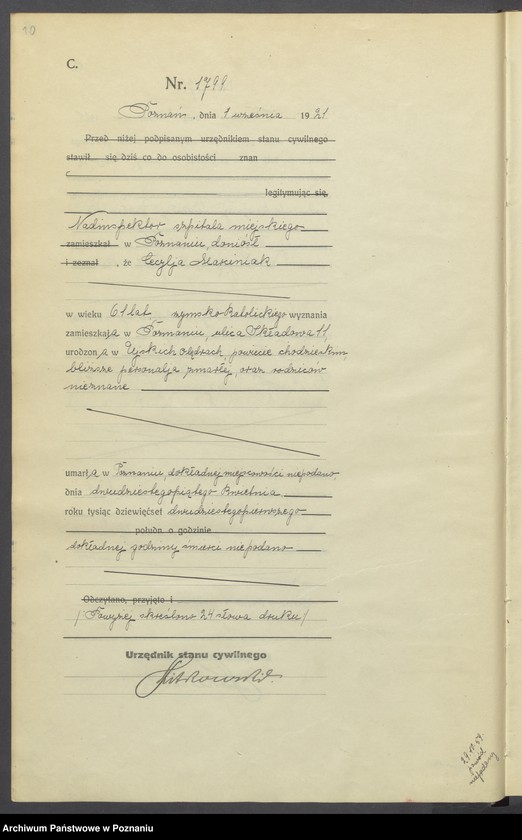 10
C.
Nr. 1799
Poznań, dnia 1 września 1921
Przed niżej podpisanym urzędnikiem stanu cywilnego
stawił się dziś co do osobistości znan
legitymując się,
Nadinspektor szpitala miejskiego
zamieszkał w Poznaniu, doniósł
i zeznał, że Cecylja Marciniak
w wieku 61 lat, rzymsko katolickiego wyznania
zamieszkała w Poznaniu, ulica Składowa 11,
urodzona w Ujskich olędrach, powiecie chodzieskim,
bliższe personalja zmarłej, oraz rodziców
nieznane
umarła w Poznaniu, dokładnej miejscowości niepodano,
dnia dwudziestegopiątego kwietnia
roku tysiąc dziewięćset dwudziestegopierwszego
połudn. o godzinie
dokładnej godziny śmierci niepodano
Odczytano, przyjęto i
/ Powyżej skreślono 24 słowa druku /
Urzędnik stanu cywilnego
Archiwum Państwowe w Poznaniu